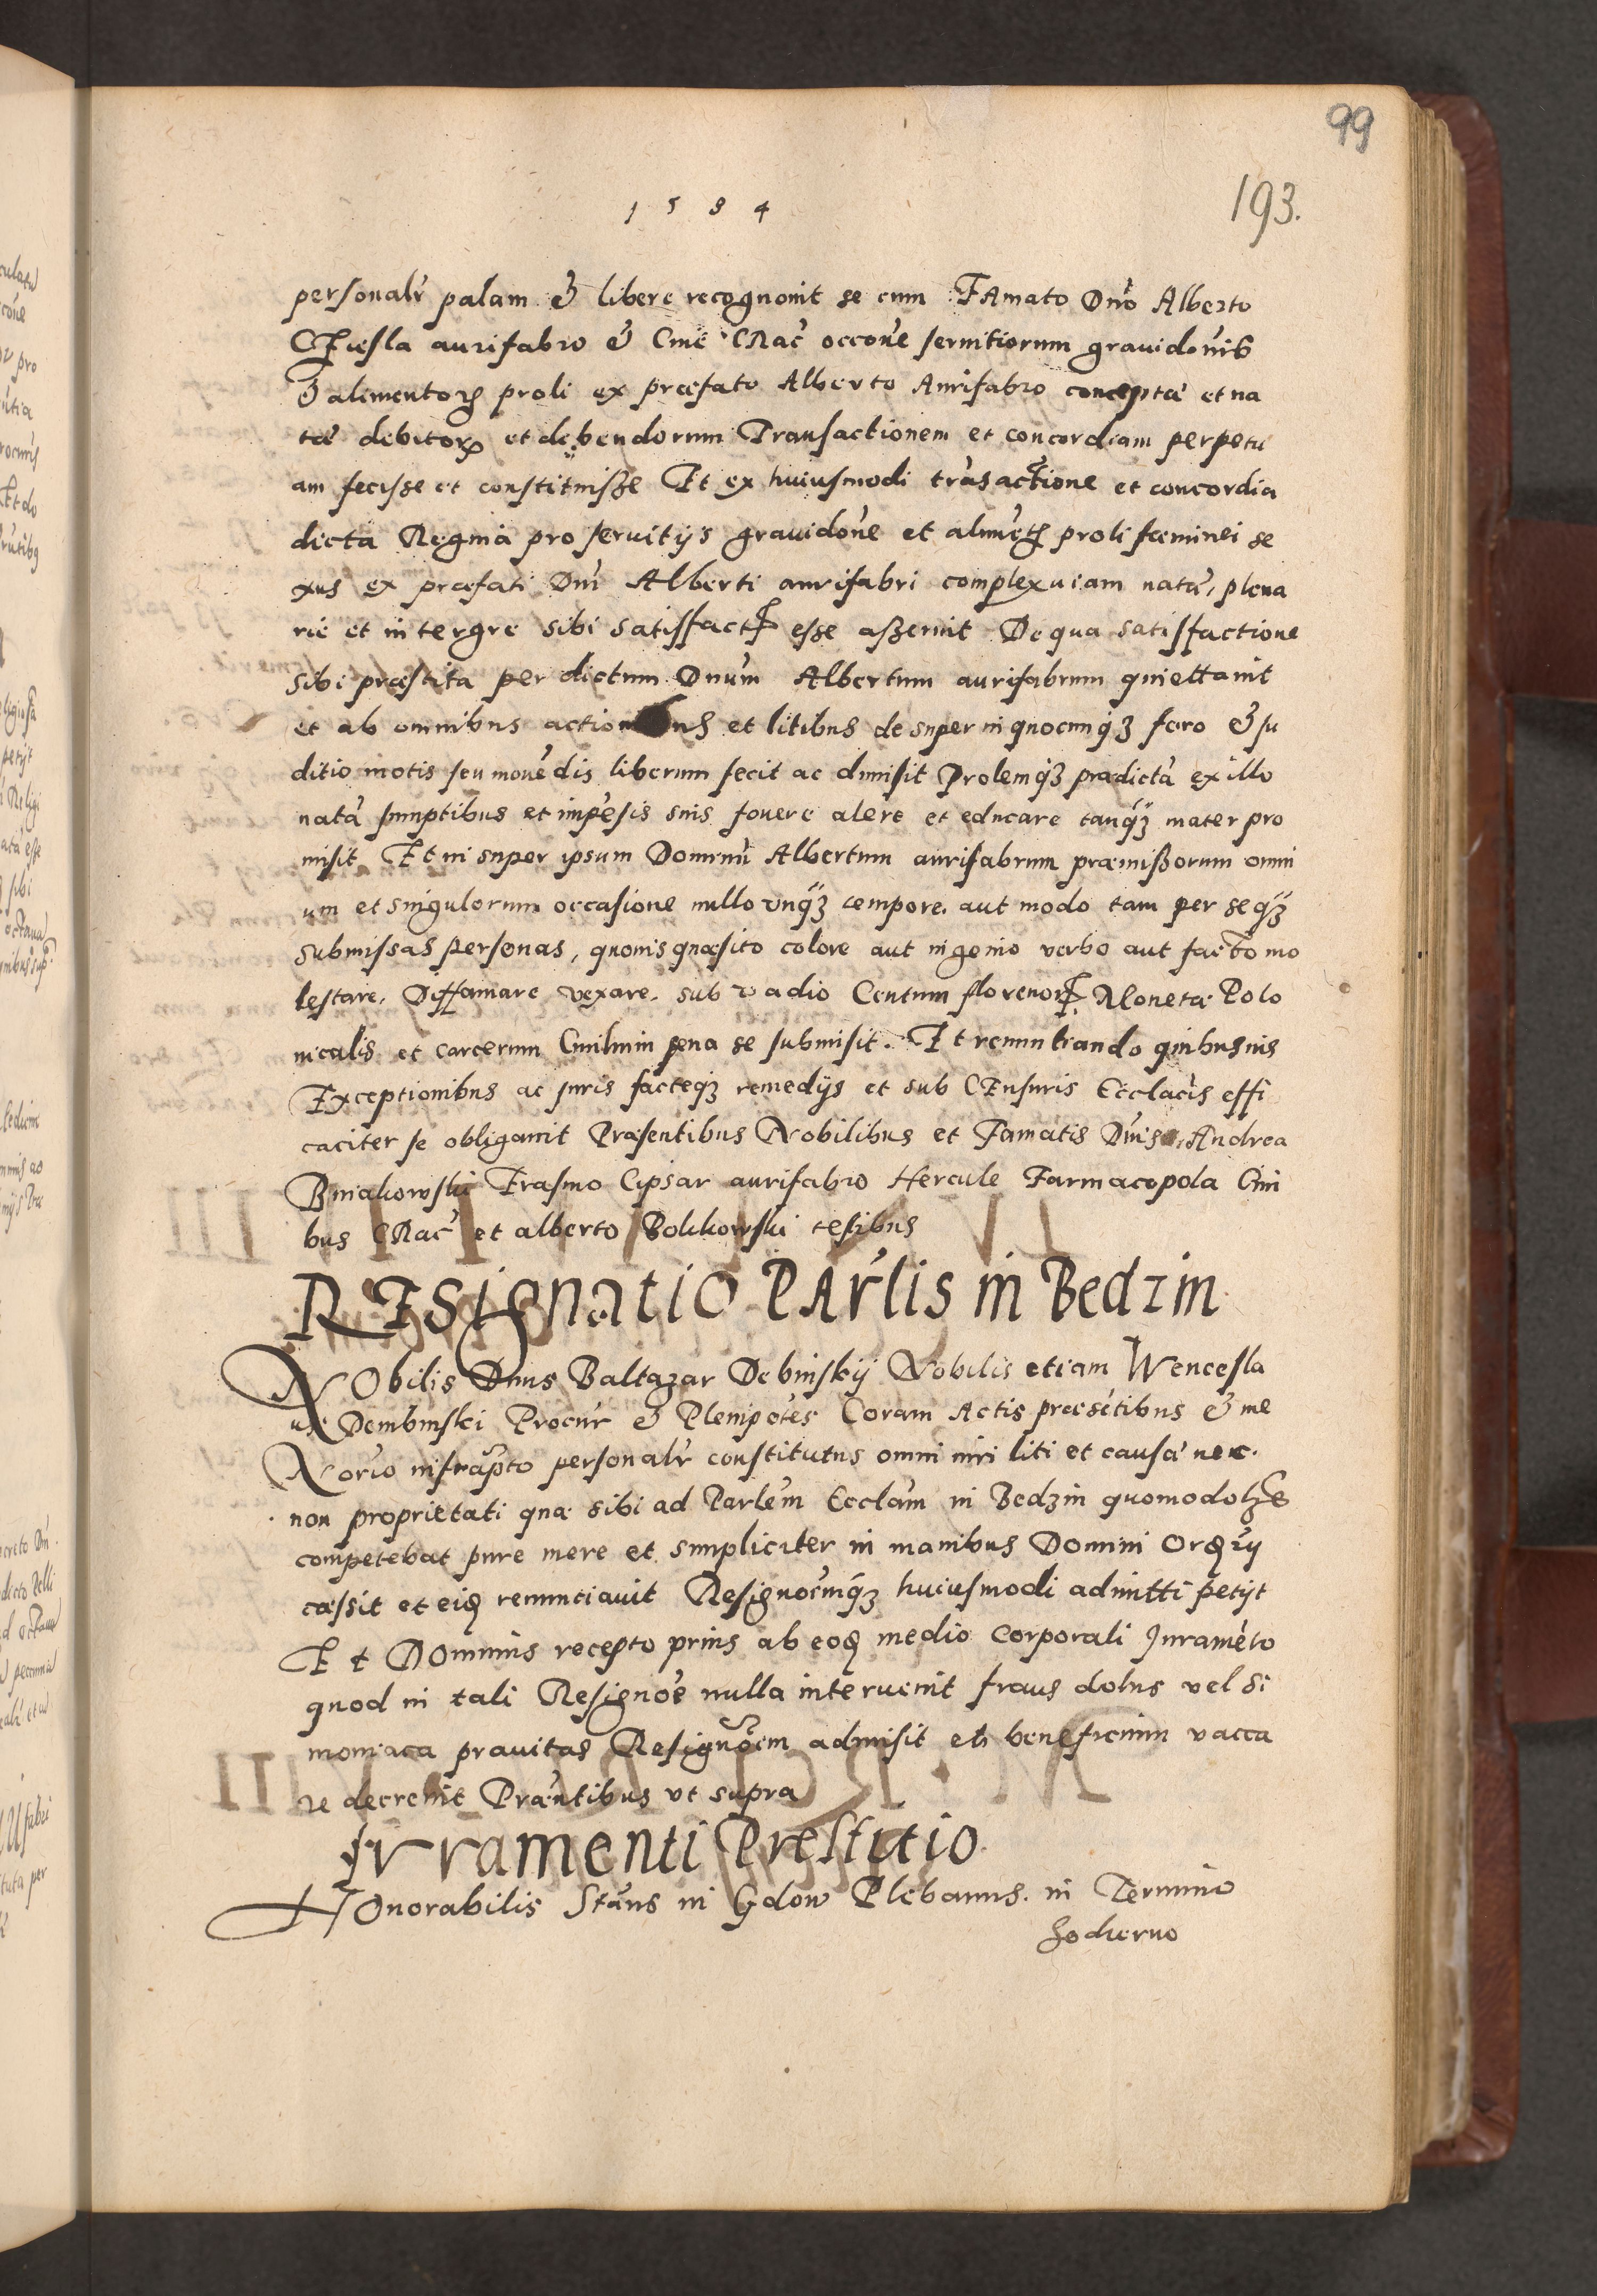 99
1584
193.
personalr palam & libere recognouit se cum FAmato Dno Alberto
CIesla aurifabro & Ciue CRac occone seruitiorum grauidonis
& alimentorum proli ex præfato Alberto Aurifabro conceptæ et na
tæ debitorum et debendorum Transactionem et concordiam perpetu
am fecisse et constituisse Et ex huiusmodi trasactione et concordia
dicta Regina pro seruitijs grauidone et alimetis proli fæminei se
xus ex præfati Dni Alberti aurifabri complexu iam natæ, plena
rie et intergre sibi satisfactum esse asseruit De qua satisfactione
sibi præstita per dictum Dnum Albertum aurifabrum quiettauit
et ab omnibus action us et litibus desuper in quocunq foro & Ju
ditio motis seu mouedis liberum fecit ac dimisit Prolemq prædictā ex illo
natā sumptibus et impesis suis fouere alere et educare tanq mater pro
misit Et insuper ipsum Dominū Albertum aurifabrum præmissorum omni
um et singulorum occasione nullo vnq tempore. aut modo tam per se q
submissas personas, quouis quæsito colore aut ingenio verbo aut facto mo
lestare, Diffamare vexare. sub vadio Centum florenorum Monetæ Polo
nicalis et carcerum Ciuilium pena se submisit. Et renuntiando quibusuis
Exceptionibus ac Juris factiq remedijs et sub CEnsuris Ecclacis effi
caciter se obligauit Præsentibus Nobilibus et Famatis Dnis, Andrea
Biniakowski Erasmo Cipsar aurifabro Hercule Farmacopola Ciui
bus CRac et alberto Bolikowski testibus
REsignatio PArlis in Bedzin
NObilis Dnus Baltazar Debinskij Nobilis etiam Wencesla
us Dembinski Procur & Plenipotes Coram Actis præsetibus & me
Norio infrapto personalr constitutus omni iuri liti et causæ nec.
non proprietati quæ sibi ad Parlem Ecclam in Bedzin quomodolz
competebat pure mere et simpliciter in manibus Domini Ordrij
cæssit et eidem renuntiauit Resignocmq huiusmodi admitti petijt
Et DOminus recepto prius ab eodem medio corporali Jurameto
quod in tali Resignoe nulla interuenit fraus dolus vel si
moniaca prauitas Resignoem admisit et beneficium vacca
re decreuit Præntibus vt supra
Iuramenti Prestitio
HOnorabilis Stans in Gdow Plebanus. in Termino
hodierno